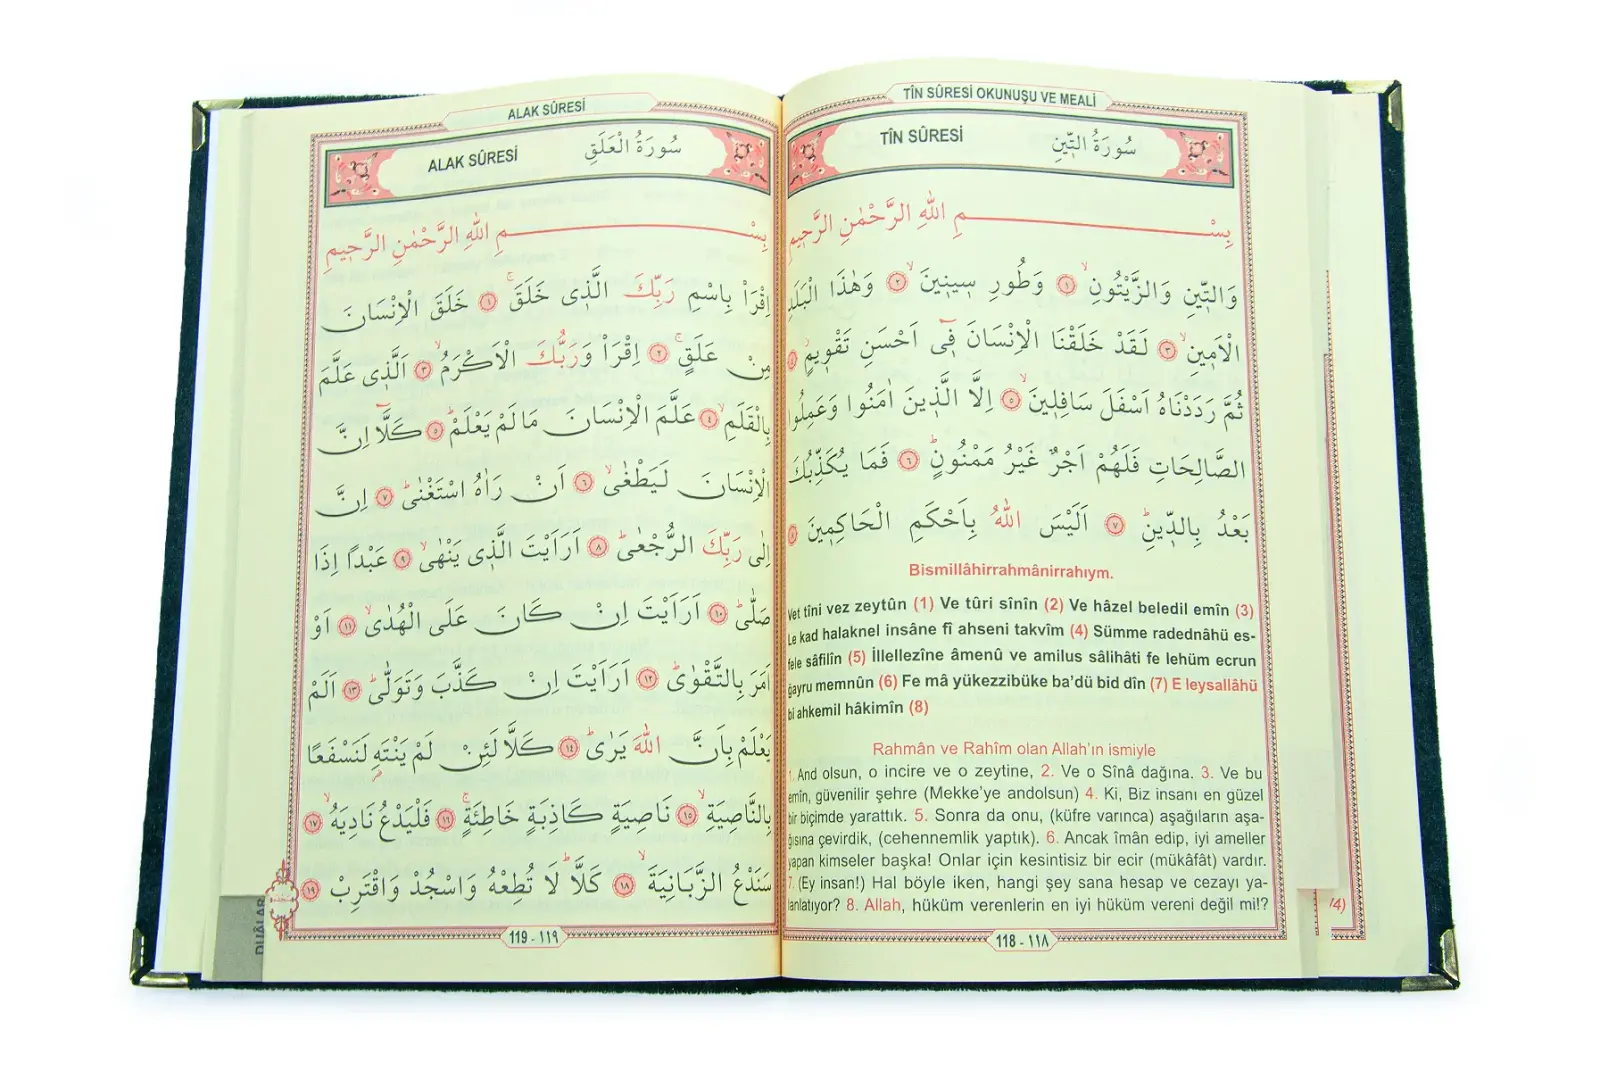 TÎN SÛRESİ OKUNUŞU VE MEALİ
TÎN SÛRESİ سُورَةُ التّ۪ينِ
بِسْمِ اللّٰهِ الرَّحْمٰنِ الرَّح۪يمِ
وَالتّ۪ينِ وَالزَّيْتُونِۙ ﴿١﴾ وَطُورِ س۪ين۪ينَۙ ﴿٢﴾ وَهٰذَا الْبَلَدِ
الْاَم۪ينِۙ ﴿٣﴾ لَقَدْ خَلَقْنَا الْاِنْسَانَ ف۪ٓي اَحْسَنِ تَقْو۪يمٍۘ ﴿٤﴾
ثُمَّ رَدَدْنَاهُ اَسْفَلَ سَافِل۪ينَۙ ﴿٥﴾ اِلَّا الَّذ۪ينَ اٰمَنُوا وَعَمِلُوا
الصَّالِحَاتِ فَلَهُمْ اَجْرٌ غَيْرُ مَمْنُونٍۜ ﴿٦﴾ فَمَا يُكَذِّبُكَ
بَعْدُ بِالدّ۪ينِۜ ﴿٧﴾ اَلَيْسَ اللّٰهُ بِاَحْكَمِ الْحَاكِم۪ينَ ﴿٨﴾
Bismillâhirrahmânirrahıym.
Vet tîni vez zeytûn (1) Ve tûri sînîn (2) Ve hâzel beledil emîn (3)
Le kad halaknel insâne fî ahseni takvîm (4) Sümme radednâhü es-
fele sâfilîn (5) İllellezîne âmenû ve amilus sâlihâti fe lehüm ecrun
ğayru memnûn (6) Fe mâ yükezzibüke ba'dü bid dîn (7) E leysallâhü
bi ahkemil hâkimîn (8)
Rahmân ve Rahîm olan Allah'ın ismiyle
1. And olsun, o incire ve o zeytine, 2. Ve o Sînâ dağına. 3. Ve bu
emîn, güvenilir şehre (Mekke'ye andolsun) 4. Ki, Biz insanı en güzel
bir biçimde yarattık. 5. Sonra da onu, (küfre varınca) aşağıların aşa-
ğısına çevirdik, (cehennemlik yaptık). 6. Ancak îmân edip, iyi ameller
yapan kimseler başka! Onlar için kesintisiz bir ecir (mükâfât) vardır.
7. (Ey insan!) Hal böyle iken, hangi şey sana hesap ve cezayı ya-
lanlatıyor? 8. Allah, hüküm verenlerin en iyi hüküm vereni değil mi!?
118 - ١١٨
ALAK SÛRESİ
ALAK SÛRESİ سُورَةُ الْعَلَقِ
بِسْمِ اللّٰهِ الرَّحْمٰنِ الرَّح۪يمِ
اِقْرَاْ بِاسْمِ رَبِّكَ الَّذ۪ي خَلَقَۚ ﴿١﴾ خَلَقَ الْاِنْسَانَ
مِنْ عَلَقٍۚ ﴿٢﴾ اِقْرَاْ وَرَبُّكَ الْاَكْرَمُۙ ﴿٣﴾ اَلَّذ۪ي عَلَّمَ
بِالْقَلَمِۙ ﴿٤﴾ عَلَّمَ الْاِنْسَانَ مَا لَمْ يَعْلَمْۜ ﴿٥﴾ كَلَّٓا اِنَّ
الْاِنْسَانَ لَيَطْغٰىۙ ﴿٦﴾ اَنْ رَاٰهُ اسْتَغْنٰىۜ ﴿٧﴾ اِنَّ
اِلٰى رَبِّكَ الرُّجْعٰىۜ ﴿٨﴾ اَرَاَيْتَ الَّذ۪ي يَنْهٰىۙ ﴿٩﴾ عَبْدًا اِذَا
صَلّٰىۜ ﴿١٠﴾ اَرَاَيْتَ اِنْ كَانَ عَلَى الْهُدٰىۙ ﴿١١﴾ اَوْ
اَمَرَ بِالتَّقْوٰىۜ ﴿١٢﴾ اَرَاَيْتَ اِنْ كَذَّبَ وَتَوَلّٰىۜ ﴿١٣﴾ اَلَمْ
يَعْلَمْ بِاَنَّ اللّٰهَ يَرٰىۜ ﴿١٤﴾ كَلَّا لَئِنْ لَمْ يَنْتَهِ لَنَسْفَعًا
بِالنَّاصِيَةِۙ ﴿١٥﴾ نَاصِيَةٍ كَاذِبَةٍ خَاطِئَةٍۚ ﴿١٦﴾ فَلْيَدْعُ نَادِيَهُۙ ﴿١٧﴾
سَنَدْعُ الزَّبَانِيَةَۙ ﴿١٨﴾ كَلَّاۜ لَا تُطِعْهُ وَاسْجُدْ وَاقْتَرِبْ ﴿١٩﴾
119 - ١١٩
DUÂLAR